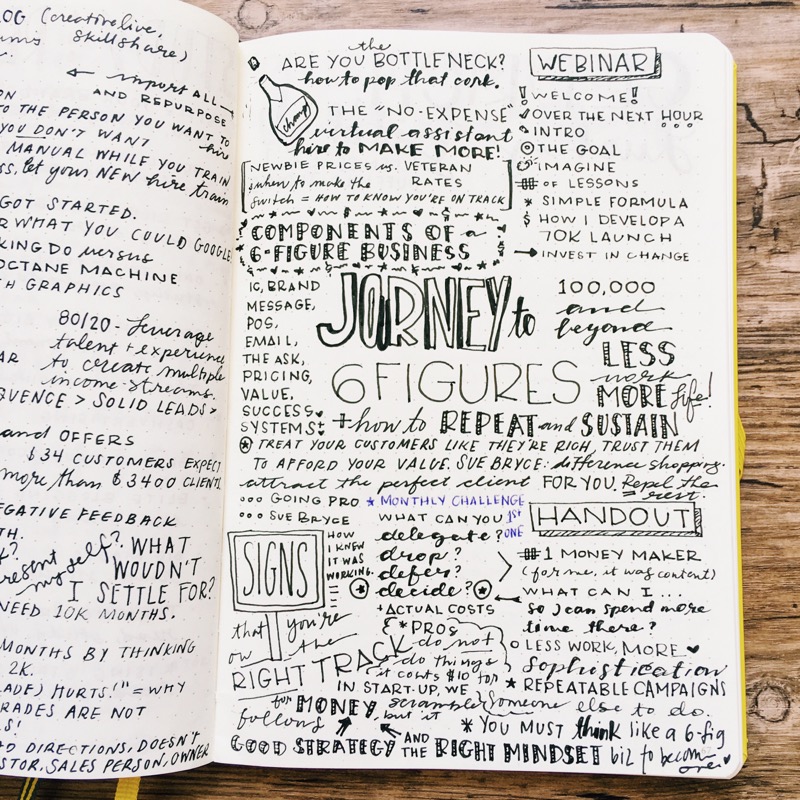 OG (creativelive,
skillshare)
← import ALL
AND REPURPOSE
TO THE PERSON YOU WANT TO
YOU DON'T WANT hire
MANUAL WHILE YOU TRAIN
let your NEW hire train
GOT STARTED.
WHAT YOU COULD GOOGLE
KING DO versus
OCTANE MACHINE
H GRAPHICS
80/20 - Leverage
talent + experience
to create multiple
income streams.
QUENCE > SOLID LEADS >
and OFFERS
$34 CUSTOMERS EXPECT
more than $3400 CLIENTS
EGATIVE FEEDBACK
TH.
present myself? WHAT
WOUDN'T
I SETTLE FOR?
NEED 10K MONTHS.
MONTHS BY THINKING
2K.
ADE) HURTS!!" = WHY
RADES ARE NOT
LS!
DIRECTIONS, DOESN'T
STOR, SALES PERSON, OWNER
ARE YOU the BOTTLENECK?
how to pop that cork.
champ
THE "NO-EXPENSE"
virtual assistant
hire to MAKE MORE!
NEWBIE PRICES vs. VETERAN
when to make the RATES
Switch = HOW TO KNOW YOU'RE ON TRACK
COMPONENTS OF a
6-FIGURE BUSINESS
IG, BRAND
MESSAGE,
POS,
EMAIL,
THE ASK,
PRICING,
VALUE,
SUCCESS
SYSTEMS
WEBINAR
! WELCOME!
OVER THE NEXT HOUR
INTRO
THE GOAL
IMAGINE
# OF LESSONS
* SIMPLE FORMULA
$ HOW I DEVELOP A
70K LAUNCH
→ INVEST IN CHANGE
JORNEY to
6 FIGURES
100,000
and
beyond
LESS
work
MORE life!
+ how to REPEAT and SUSTAIN
TREAT YOUR CUSTOMERS LIKE THEY'RE RICH, TRUST THEM
TO AFFORD YOUR VALUE. SUE BRYCE: difference shopping.
attract the perfect client FOR YOU. Repel the
rest.
GOING PRO
SUE BRYCE
* MONTHLY CHALLENGE
WHAT CAN YOU 1ST
delegate? ONE
drop?
defer?
decide?
+ ACTUAL COSTS
SIGNS
HOW
I KNEW
IT WAS
WORKING.
that you're
on the
RIGHT TRACK
* PROS
do not
do things
(it costs $10 for
someone else to do.
IN START-UP, WE
scramble
for MONEY, but it
follows
GOOD STRATEGY AND THE RIGHT MINDSET
HANDOUT
#1 MONEY MAKER
(for me, it was content)
WHAT CAN I...
so I can spend more
time there?
LESS WORK, MORE ♥
sophistication
★ REPEATABLE CAMPAIGNS
* YOU MUST think like a 6-fig
biz to become
one